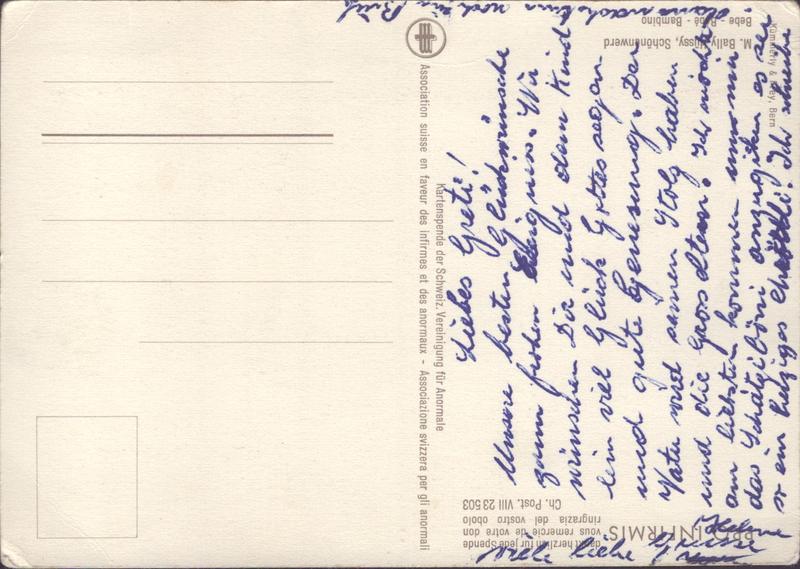 Liebes Greti!
Unsere besten Glückwünsche
zum frohen Ereignis. Wir
wünschen Dir und dem Kind
lein viel Glück Gottes segen
und gute Genesung. Der
Vater wird seinen Stolz haben
und die Grosseltern. Ich möchte
am liebsten kommen um mir
das Schätzibörni anzugüten es sei
so ein herziges Ich schreibe
dann nächstens noch ein Brief
Viele liebe Grüsse
Helene
M. Bally-Jussy, Schönenwerd
Bebe - Bébé - Bambino
Kümmerly & Frey, Bern
Association suisse en faveur des infirmes et des anormaux - Associazione svizzera per gli anormali
Kartenspende der Schweiz. Vereinigung für Anormale
PRO INFIRMIS
dankt herzlich für jede Spende
vous remercie de votre don
ringrazia del vostro obolo
Ch. Post. VIII 23 503